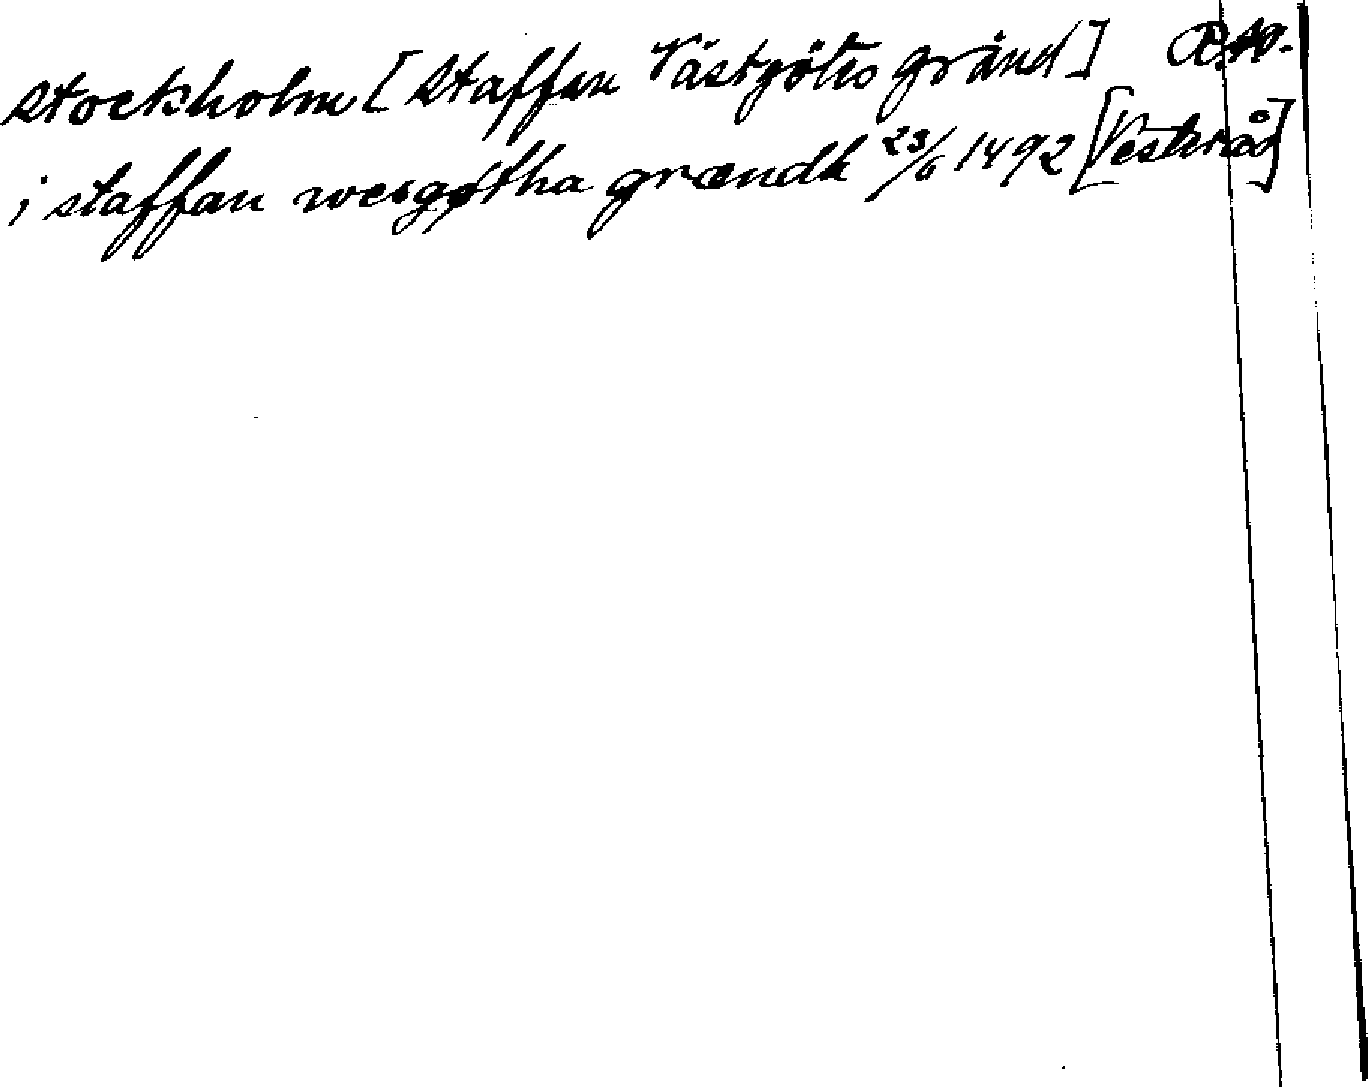 Stockholm [Staffan Västgötes gränd] RAp.
i staffan wesgøtha grændh 23/6 1492 [Vesterås]